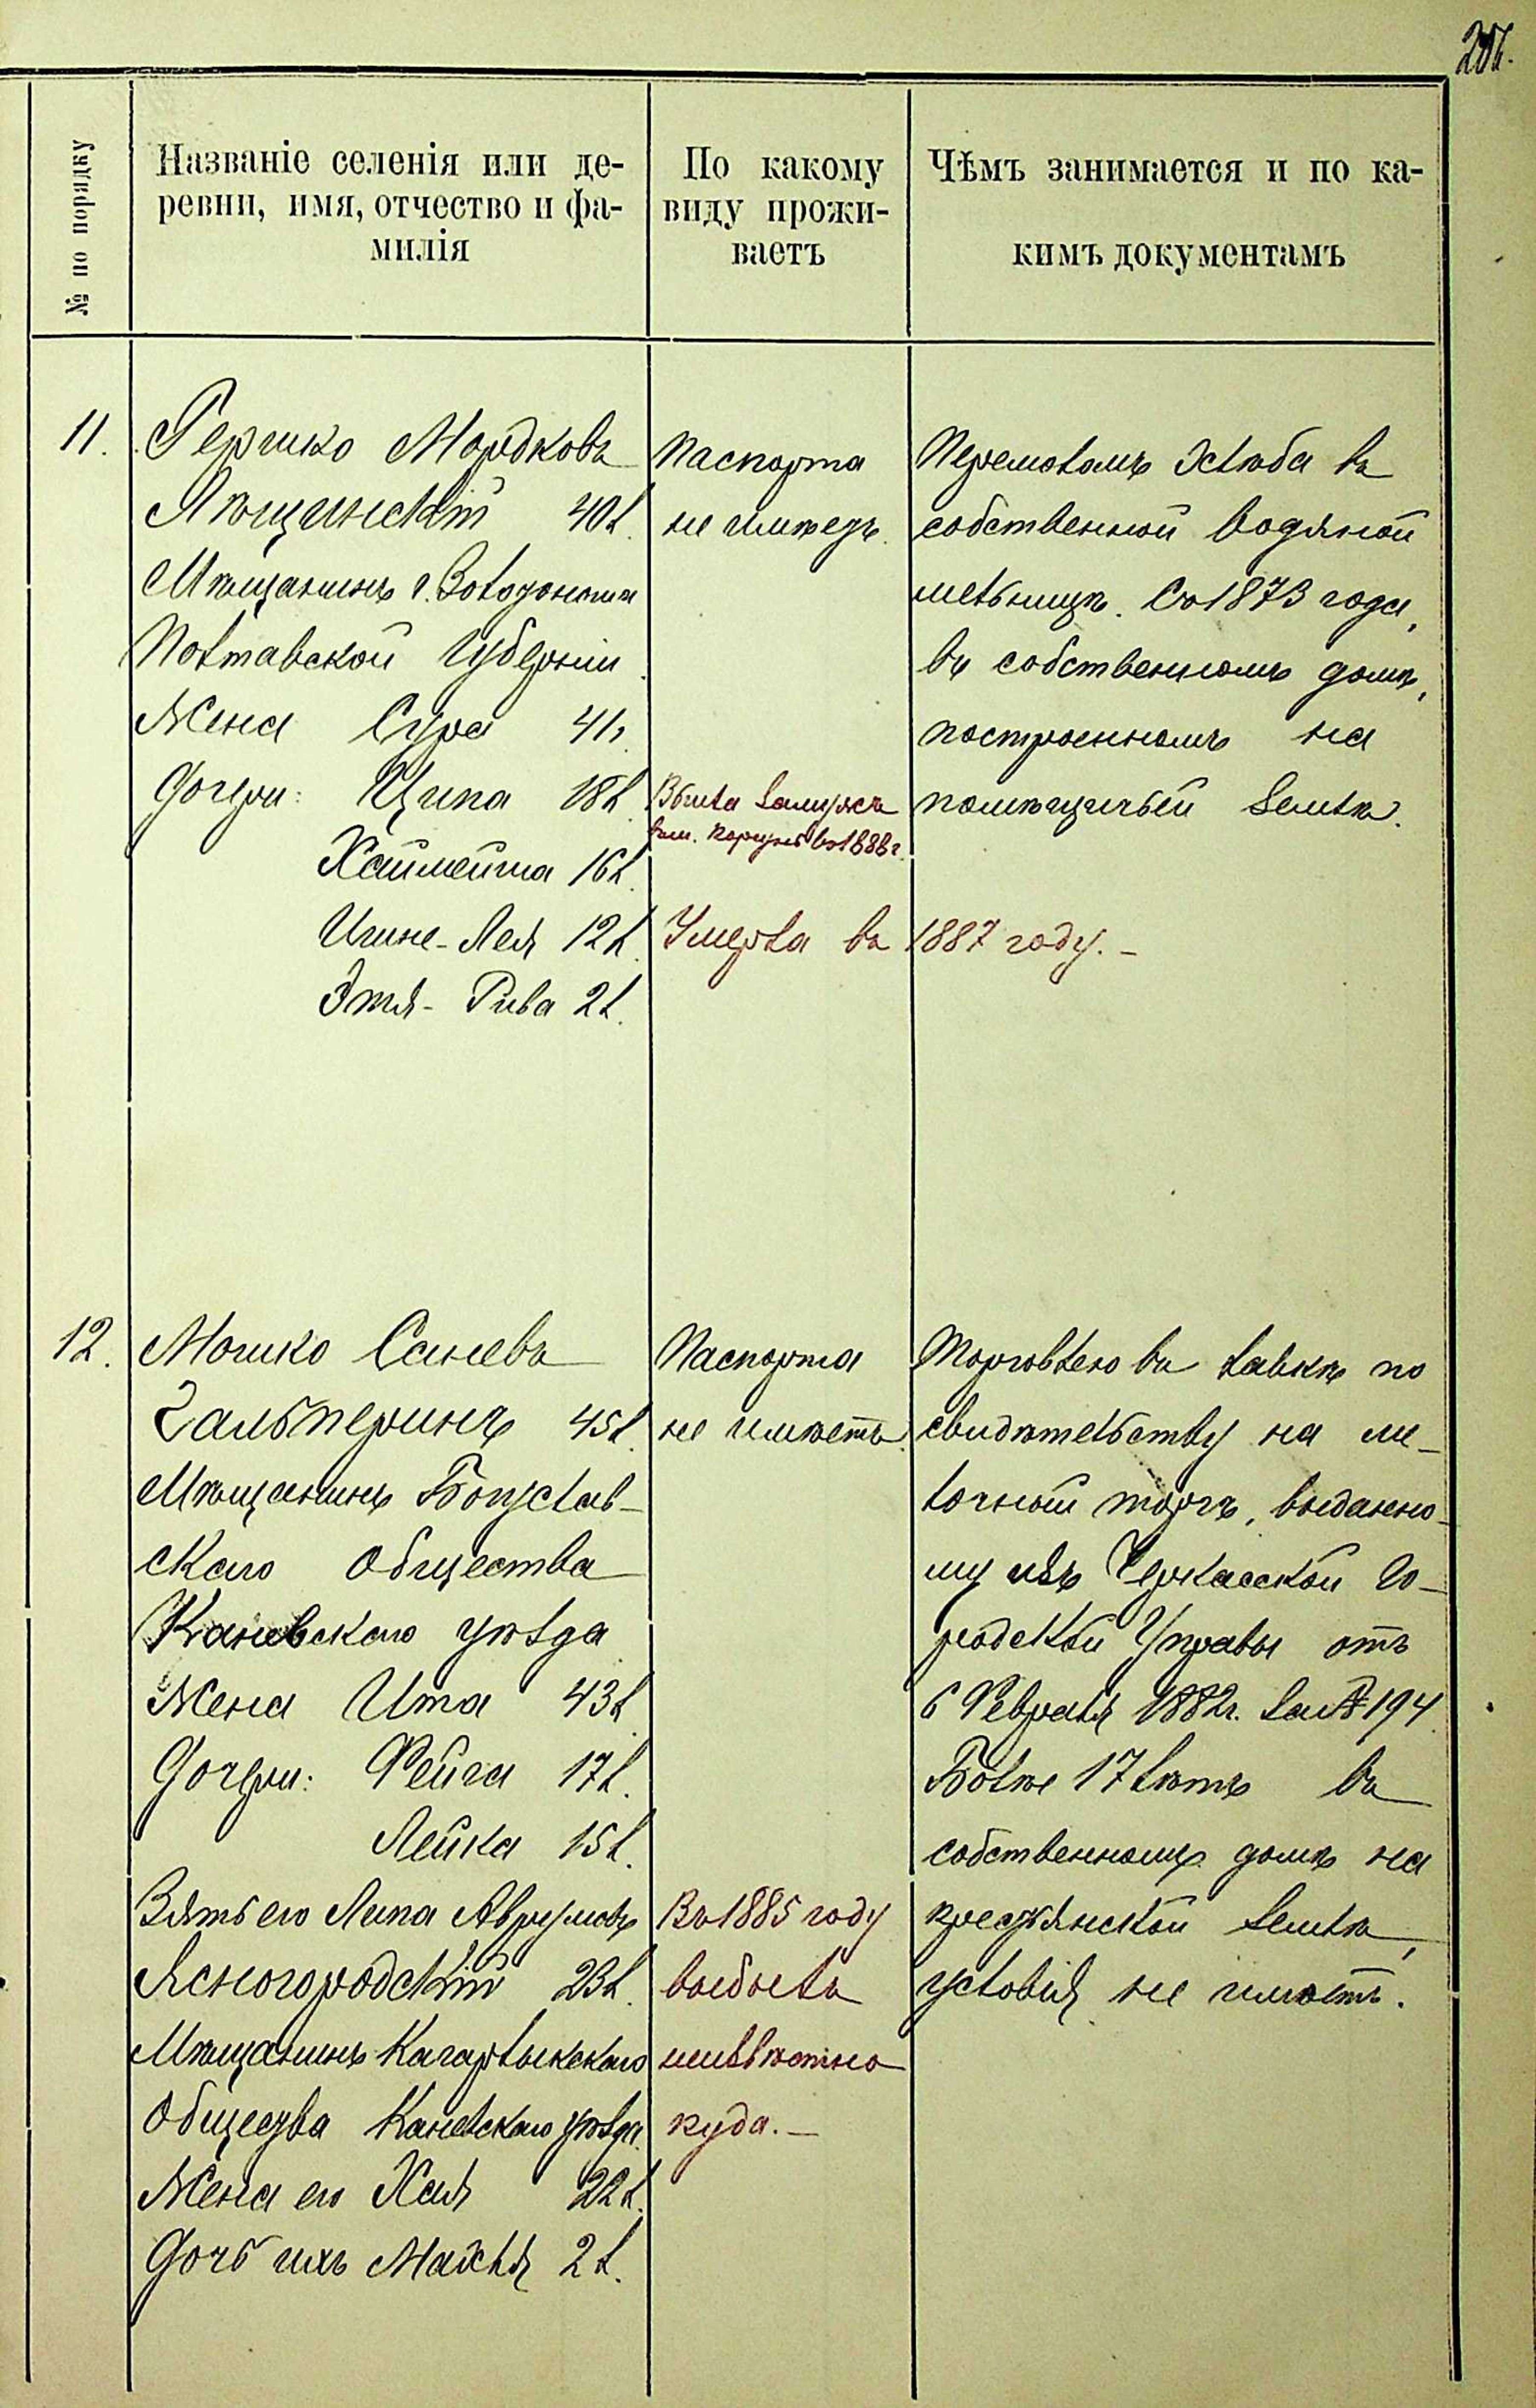 № по порядку
Названіе селенія или де-
ревни, имя, отчество и фа-
милія
По какому
виду прожи-
ваетъ
Чѣмъ занимается и по ка-
кимъ документамъ
11.
Гершко Мордковъ
Лящинскій 40 л.
Мѣщанинъ г. Золотоноши
Полтавской губерніи
Жена Сура 41 г.
Дочери: Ципа 18 л.
Хаймейша 16 л.
Шине-Лея 12 л.
Этя-Рива 2 л.
Паспорта
не имѣетъ.
Вышла замужъ
въ м. въ 1888 г.
Умерла въ 1887 году.-
Перемоломъ хлѣба въ
собственной водяной
мельницѣ. Съ 1873 года,
въ собственномъ домѣ,
построенномъ на
помѣщичьей землѣ.
12.
Мошко Саневъ
Гальперинъ 45 л.
Мѣщанинъ Богуслав-
скаго Общества
Каневскаго уѣзда
Жена Ита 43 л.
Дочери: Фейга 17 л.
Лейка 15 л.
Зять его Липа Аврумовъ
Ясногородскій 23 л.
Мѣщанинъ Кагарлыкскаго
Общества Каневскаго уѣзда.
Жена его Хая 22 л.
Дочь ихъ Махля 2 л.
Паспорта
не имѣетъ.
Въ 1885 году
выбылъ
неизвѣстно
куда.-
Торговлею въ лавкѣ по
свидѣтельству на ме-
лочной торгъ, выданно-
му изъ Черкасской Го-
родской Управы отъ
6 Февраля 1882 г. за № 194
Болѣе 17 лѣтъ въ
собственномъ домѣ на
крестьянской землѣ,
условія не имѣетъ.